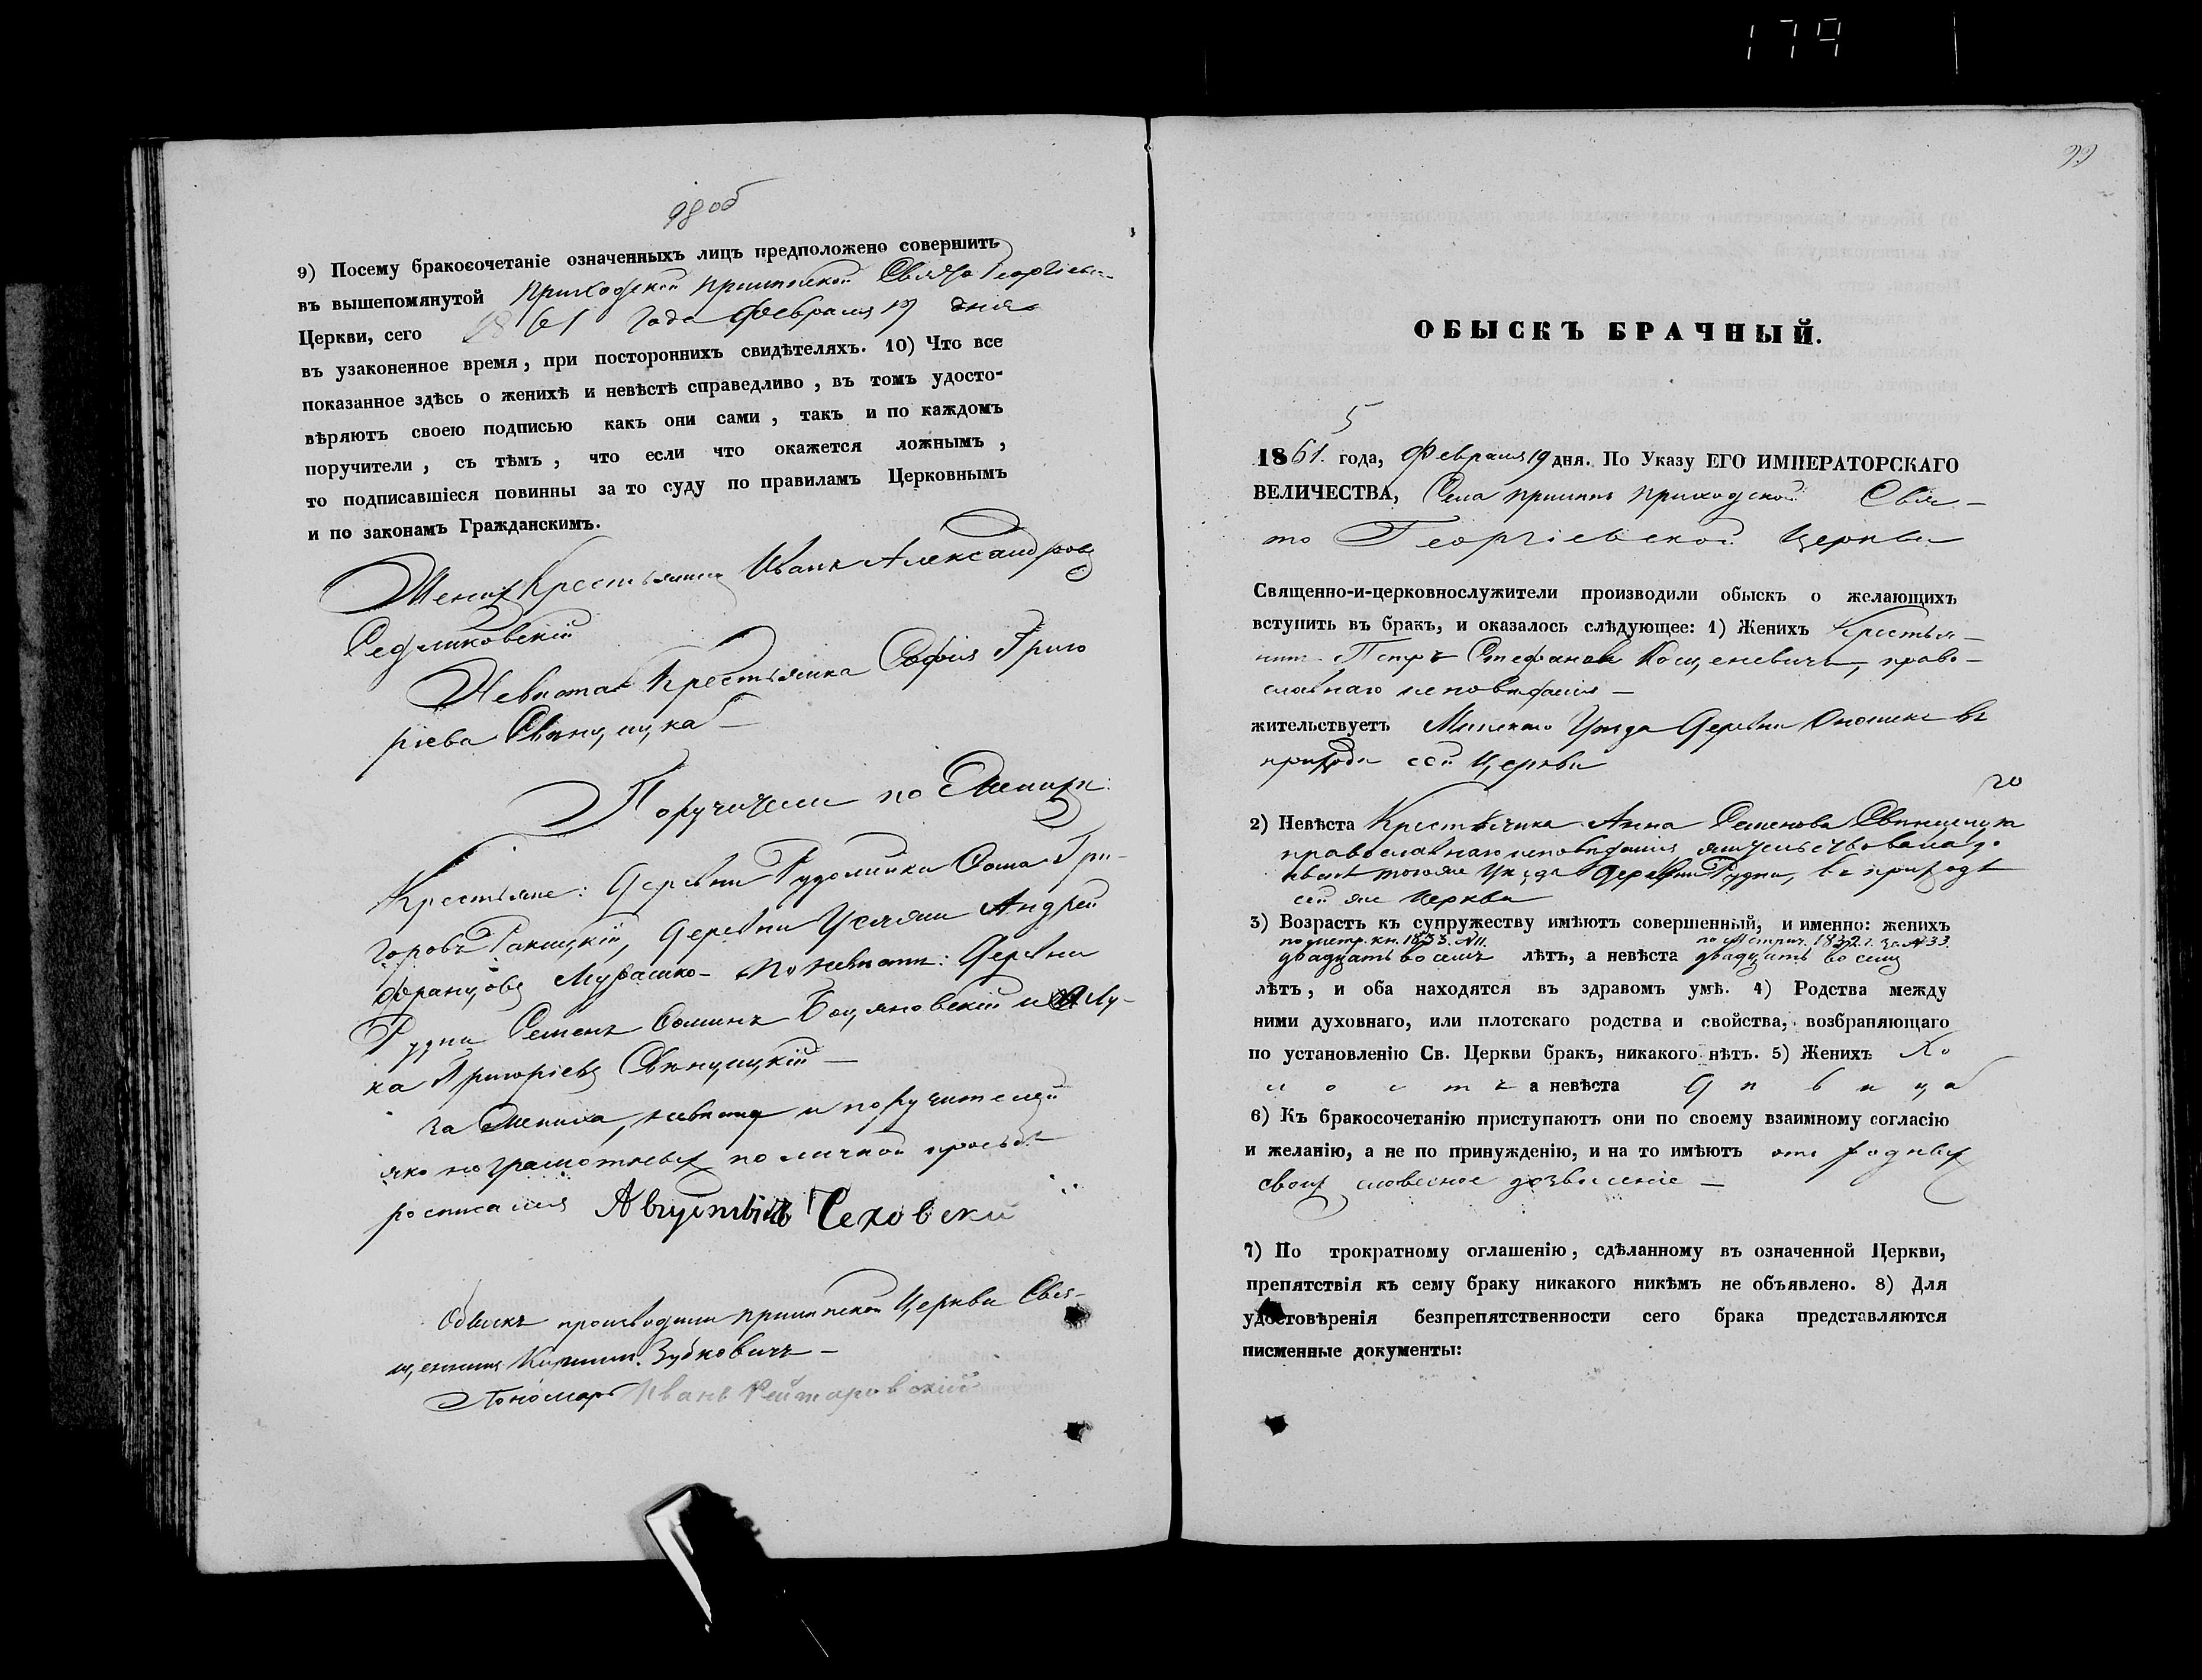 179
98 об
9) Посему бракосочетаніе означенныхъ лицъ предположено совершить
въ вышепомянутой Приходской Свято Георгіев
Церкви, сего 1861 года Февраля 19 дня
въ узаконенное время, при постороннихъ свидѣтеляхъ. 10) Что все
показанное здѣсь о женихѣ и невѣстѣ справедливо, въ томъ удосто-
вѣряютъ своею подписью какъ они сами, такъ и по каждомъ
поручители, съ тѣмъ, что если что окажется ложнымъ,
то подписавшіеся повинны за то суду по правиламъ Церковнымъ
и по законамъ Гражданскимъ.
Женихъ Крестьянинъ Иванъ Александровъ
Седликовскій
Невѣста Крестьянка Софія Григо
ріева Свѣнцицка
Поручители по Женихѣ:
Крестьяне: Деревни Фома Гри-
горовъ Ракицкій, Деревни Усляжи Андрей
Францовъ Мурашко- По невѣстѣ: Деревни
Рудни Семенъ Фоминъ Боцяновскій и Лу-
ка Григоріевъ Свѣнцицкій —
За Жениха, невѣсту и поручителей
яко неграмотныхъ по личной просьбѣ
росписался Августинъ Чеховски
Обыскъ производили Церкви Свя-
щенникъ Зубковичъ —
Пономарь Иванъ Рейтаровскій
99
ОБЫСКЪ БРАЧНЫЙ.
5
1861. года, Февраля 19 дня. По Указу ЕГО ИМПЕРАТОРСКАГО
ВЕЛИЧЕСТВА, Села приходской Свя-
то Георгіевской Церкви
Священно-и-церковнослужители производили обыскъ о желающихъ
вступить въ бракъ, и оказалось слѣдующее: 1) Женихъ Крестья-
нинъ Петръ Стефановъ Косценевичъ, право-
славнаго исповѣданія —
жительствуетъ Минскаго Уѣзда Деревни въ
приходѣ сей Церкви
2) Невѣста Крестьянка Анна Семенова Свѣнцицка
православнаго исповѣданія жительствовала до
нынѣ того же Уѣзда Деревни Рудни, въ приходѣ
сей же Церкви
3) Возрастъ къ супружеству имѣютъ совершенный, и именно: женихъ
по метр. кн. 1833. №11. по метрич. 1832 г. за № 33
двадцать восемь лѣтъ, а невѣста двадцать восемь
лѣтъ, и оба находятся въ здравомъ умѣ. 4) Родства между
ними духовнаго, или плотскаго родства и свойства, возбраняющаго
по установленію Св. Церкви бракъ, никакого нѣтъ. 5) Женихъ Хо
лостъ а невѣста Дѣвица
6) Къ бракосочетанію приступаютъ они по своему взаимному согласію
и желанію, а не по принужденію, и на то имѣютъ отъ родныхъ
своихъ словесное дозволеніе —
7) По трократному оглашенію, сдѣланному въ означенной Церкви,
препятствія къ сему браку никакого никѣмъ не объявлено. 8) Для
удостовѣренія безпрепятственности сего брака представляются
писменные документы: